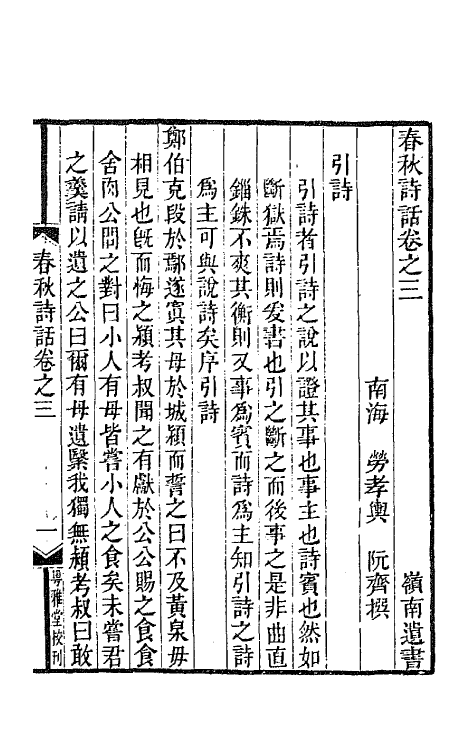 春秋詩話卷之三
嶺南遺書
南海 勞孝輿 阮齋撰
引詩
引詩者引詩之說以證其事也事主也詩賓也然如
斷獄焉詩則爰書也引之斷之而後事之是非曲直
錙銖不爽其衡則又事爲賓而詩爲主知引詩之詩
爲主可與說詩矣序引詩
鄭伯克段於鄢遂寘其母於城潁而誓之曰不及黃泉毋
相見也旣而悔之潁考叔聞之有獻於公公賜之食食
舍肉公問之對曰小人有母皆嘗小人之食矣未嘗君
之羹請以遺之公曰爾有母遺繄我獨無潁考叔曰敢
春秋詩話卷之三
一
粵雅堂校刊